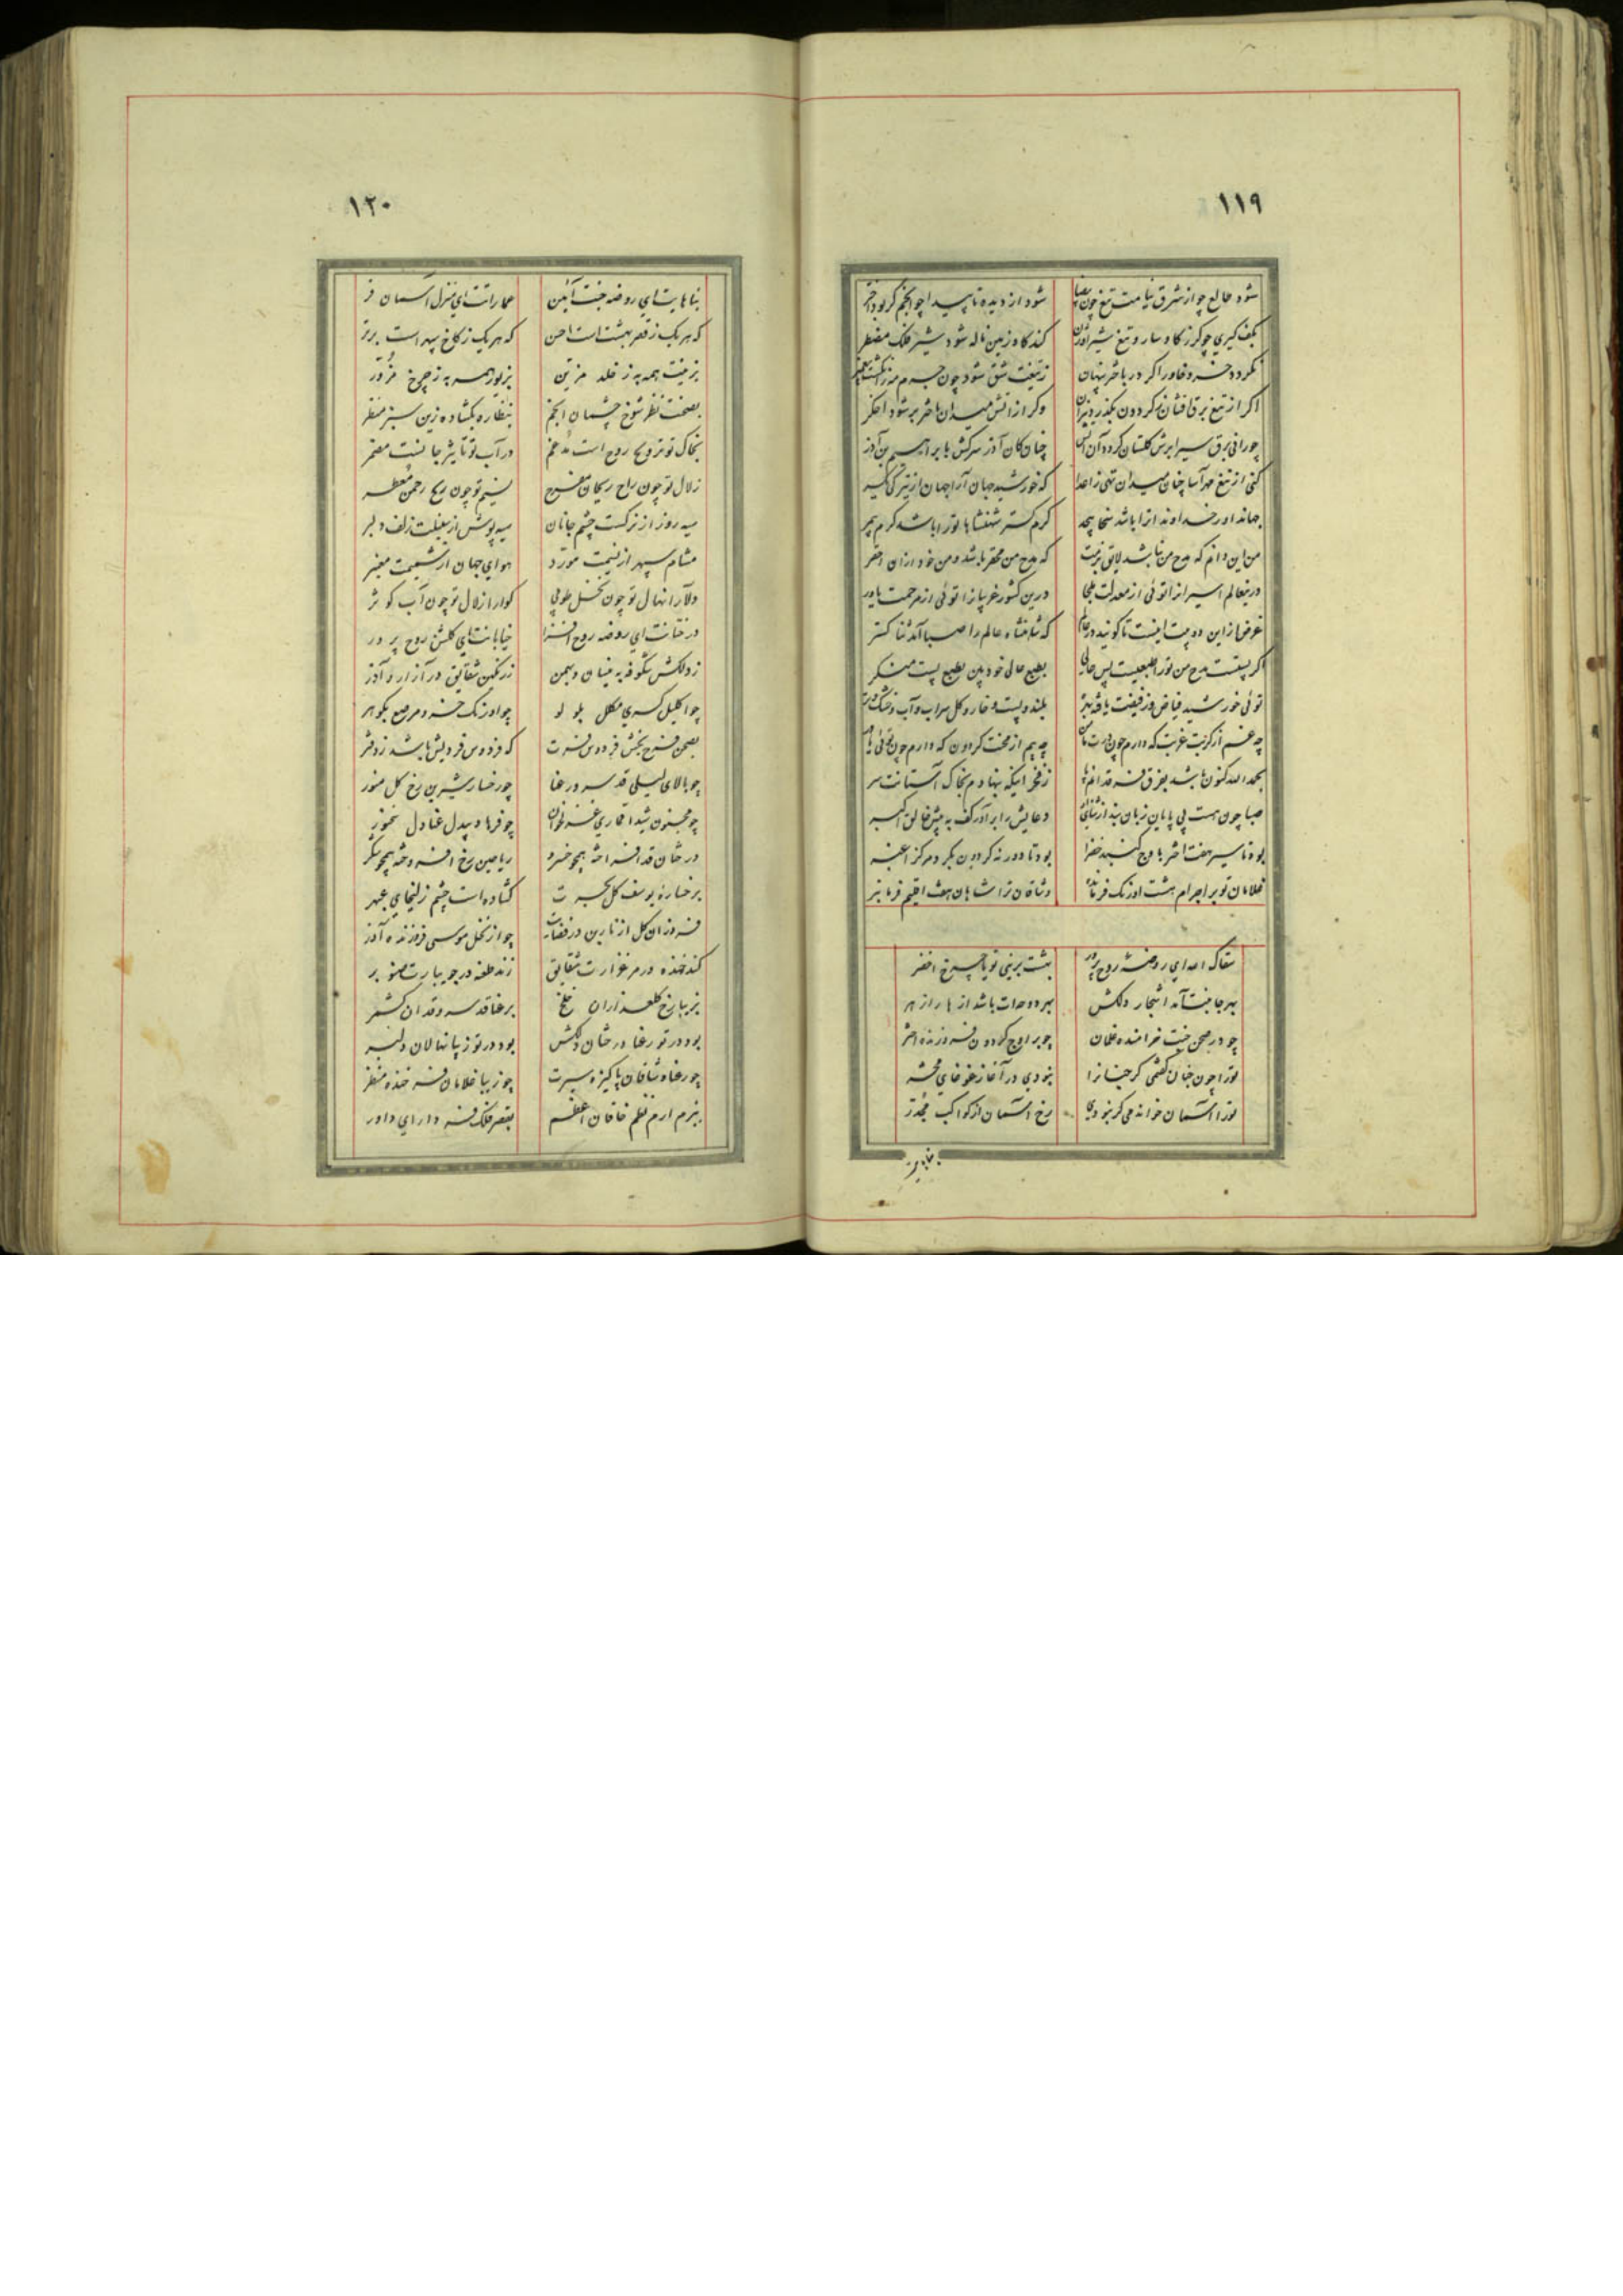 ١١٩
شود طالع چو از شرق نیامت تیغ چون بیضا شود از دیده ناپیدا چو انجم گر بود اختر
بکف گیری چو گرز گاوسار و تیغ شیر اوژن کند گاو زمین ناله شود شیر فلک مضطر
نگردد خسرو خاور اگر در باختر پنهان ز تیغت شق شود چون جرم مه ز انگشت پیغمبر
اگر از تیغ برق افشان گردون بگذرد نیران وگر از آتش میدان باختر بر شود اخگر
چو رانی برق سیر ابرش گلستان گردد آن آتش چنان کان آذر سرکش بابراهیم بن آذر
کنی از تیغ مهرآسا چنان میدان تهی ز اعدا که خورشید جهان آرا جهان از تیرگی یکسر
جهاندارا خداوندا ترا باشد کرم گستر شهنشاها ترا باشد کرم
من این دانم که مدح من نباشد لایق بزمت که مدح من محقر باشد و من خود از آن احقر
درینعالم اسیرانرا توئی از معدلت ملجا درین کشور غریبانرا توئی از مرحمت یاور
غرض از این دو بیت اینست تا گویند در عالم که شاهنشاه عالم را صبا آمد ثنا گستر
اگر پستست مدح من ترا طبعیست بس عالی بطبع عالی خود بین بطبع پست من منگر
توئی خورشید فیاض وز فیضت یافته بهره بلند و پست و خار و گل سراب و آب و خشک و تر
چه غم از کربت غربت که دارم چون درت مأمن چه بیم از محنت گردون که دارم چون توئی یاور
بحمدالله کنون باشد بفرق فرقدانم پا ز فخر اینکه بنهادم بخاک آستانت سر
صبا چون هست بی پایان زبان بند از ثنای دعایش را برآور کف به پیش خالق اکبر
بود تا سیر هفت اختر باوج گنبد خضرا بود تا دور نه گردون بگرد مرکز اغبر
غلامان تو بر اجرام هشت اورنگ فرمانده وشاقان ترا شاهان هفت اقلیم فرمانبر
سقاک الله ای روضه روح پرور بهشت برینی تو یا چرخ اخضر
بهر جانبت آمد اشجار دلکش بهر دوحه‌ات باشد ازهار ازهر
چو در صحن جنت خرامنده غلمان چو بر اوج گردون فروزنده اختر
ترا چون جنان گفتمی گر جنانرا نبودی در آغاز غوغای محشر
ترا آسمان خواندمی گر نبودی رخ آسمان از کواکب مجدر
بناهایت
١٢٠
بناهایت ای روضه جنت آئین عماراتت ای منزل آسمان فر
که هر یک ز قصر بهشت است احسن که هر یک ز کاخ سپهر است برتر
بزینت همه به ز خلد مزین بزیور همه به ز چرخ مزور
بصحنت نظر شوخ چشمان انجم بنظاره بگشاده زین سبز منظر
بخاک تو ترویح روح است مدغم در آب تو تأثیر جانست مضمر
زلال تو چون راح ریحان مفرح نسیم تو چون ریح رحمن معطر
سیه روز از نرگست چشم جانان سیه پوش از سنبلت زلف دلبر
مشام سپهر از نسیمت مورد هوای جهان از شمیمت معنبر
دلارا نهال تو چون نخل طوبی گوارا زلال تو چون آب کوثر
درختانت ای روضه روح افزا خیابانت ای گلشن روح پرور
ز دلکش شگوفه به نیسان و بهمن ز رنگین شقایق در آزار و آذر
چو اکلیل کسری مکلل بلولو چو اورنگ خسرو مرصع بگوهر
بصحن فرح بخش فردوس فرت که فردوس فردیش باشد ز دفتر
چو بالای لیلی قد سرو رعنا چو رخسار شیرین رخ گل منور
چو مجنون شیدا قماری غزلخوان چو فرهاد بیدل عنادل سخنور
درختان قد افراخته همچو خسرو ریاحین رخ افروخته همچو شکر
برخساره یوسف گل بحسرت گشاده است چشم زلیخای عبهر
فروزان گل از نارین در فضایت چو از نخل موسی فروزنده آذر
کند خنده در مرغزارت شقایق زند طعنه در جویبارت صنوبر
بزیبا رخ گلعذاران خلخ برعنا قد سرو قدان کشمر
بود در تو رعنا درختان دلکش بود در تو زیبا نهالان دلبر
چو رعنا وشاقان پاکیزه سیرت چو زیبا غلامان فرخنده منظر
ببزم ارم نظم خاقان اعظم بقصر فلک فر دارای داور